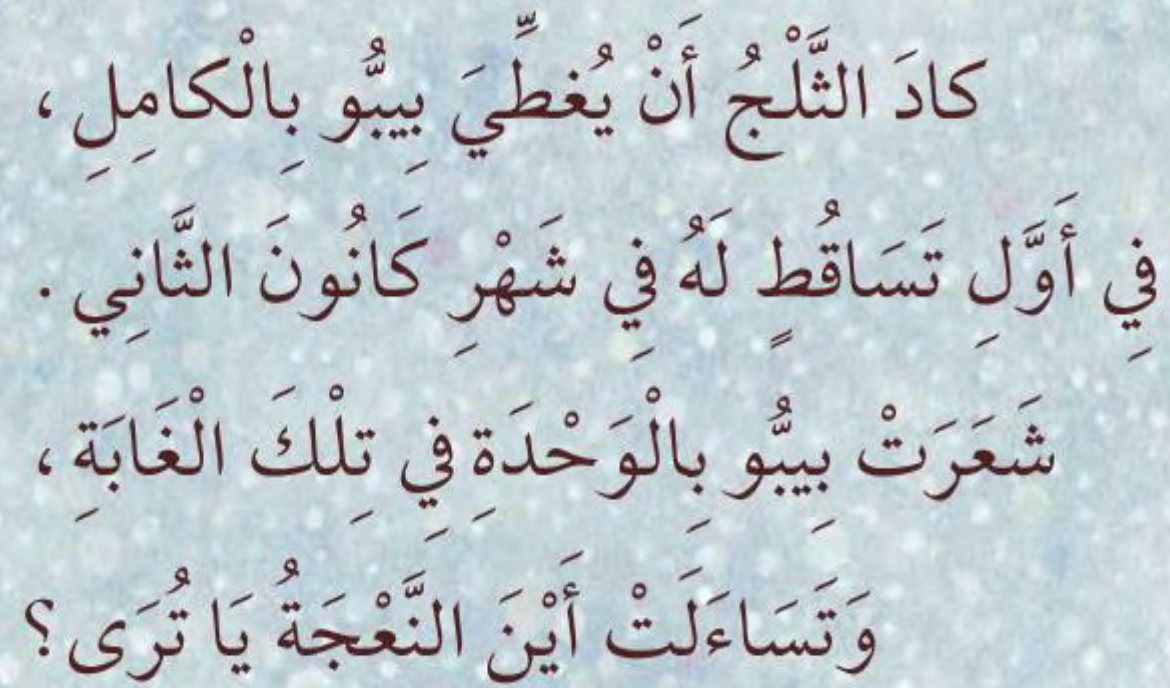 كادَ الثَّلْجُ أَنْ يُغطِّيَ بِيبُّو بِالْكامِلِ ،
فِي أَوَّلِ تَسَاقُطٍ لَهُ فِي شَهْرِ كَانُونَ الثَّانِي .
شَعَرَتْ بِيبُّو بِالْوَحْدَةِ فِي تِلْكَ الْغَابَةِ ،
وَتَسَاءَلَتْ أَيْنَ النَّعْجَةُ يَا تُرَى؟